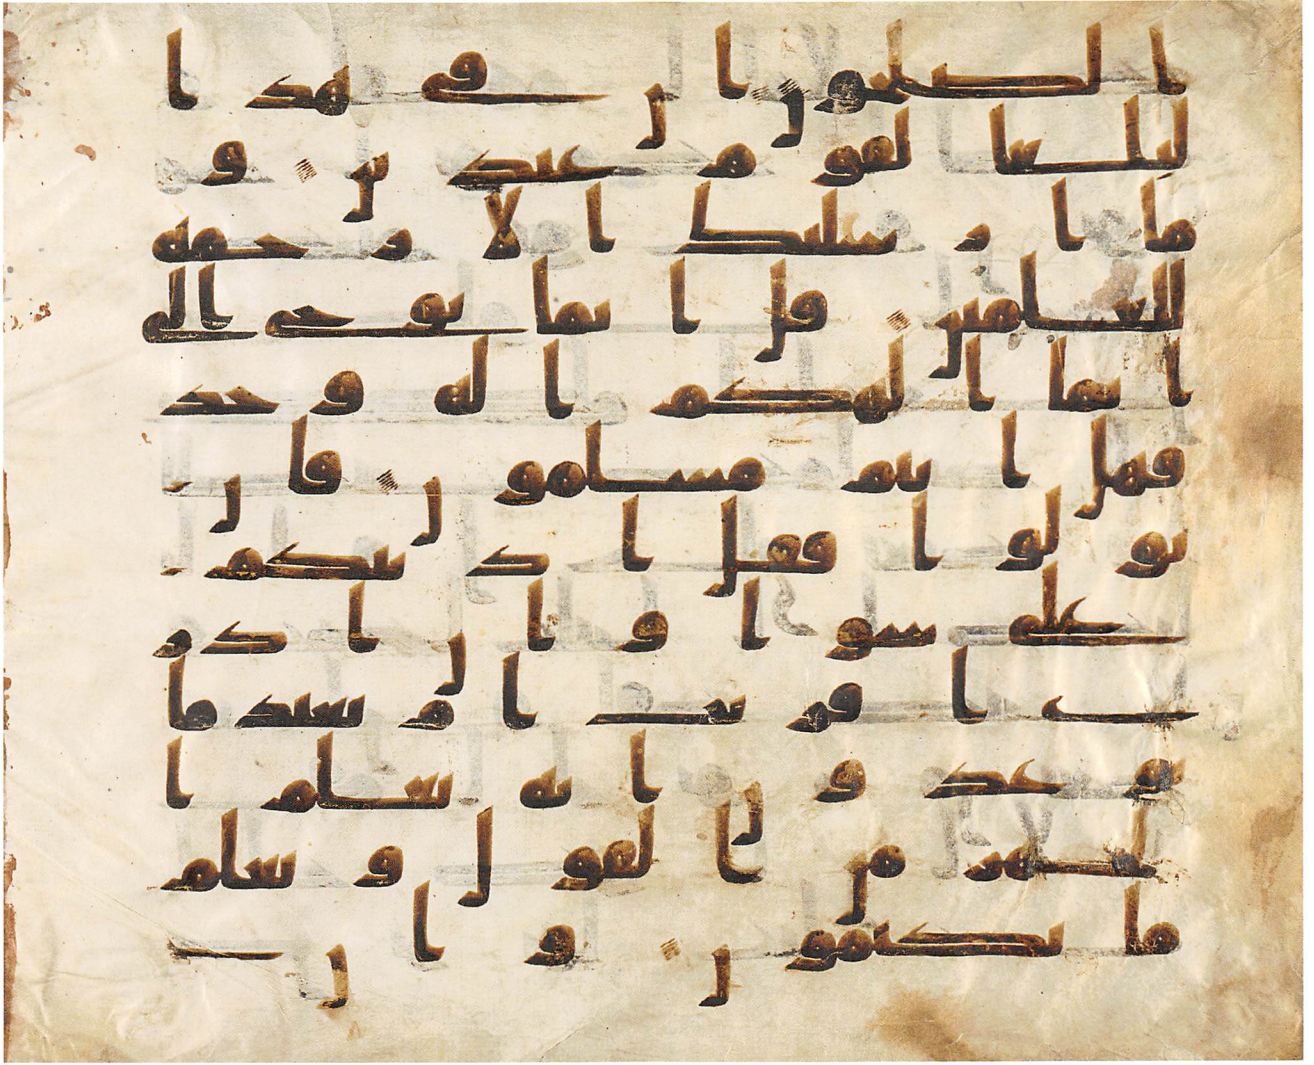 الصلحون ان في هذا
لبلغا لقوم عبدين و
ما ارسلنك الا رحمة
للعلمين قل انما يوحى الى
انما الهكم اله وحد
فهل انتم مسلمون فان
تولوا فقل اذنتكم
على سوا وان ادر
ى اقريب ام بعيد ما
توعدون انه يعلم ا
لجهر من القول ويعلم
ما تكتمون وان